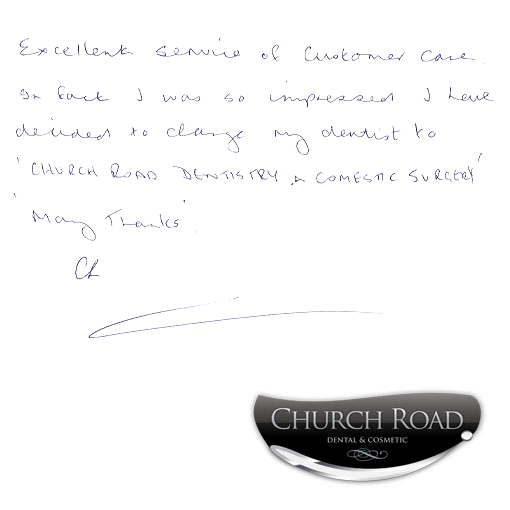 Excellent service of Customer care.
In fact I was so impressed I have
decided to change my dentist to
'CHURCH ROAD DENTISTRY & COMESTIC SURGERY'
'Many Thanks'
CL
CHURCH ROAD
DENTAL & COSMETIC